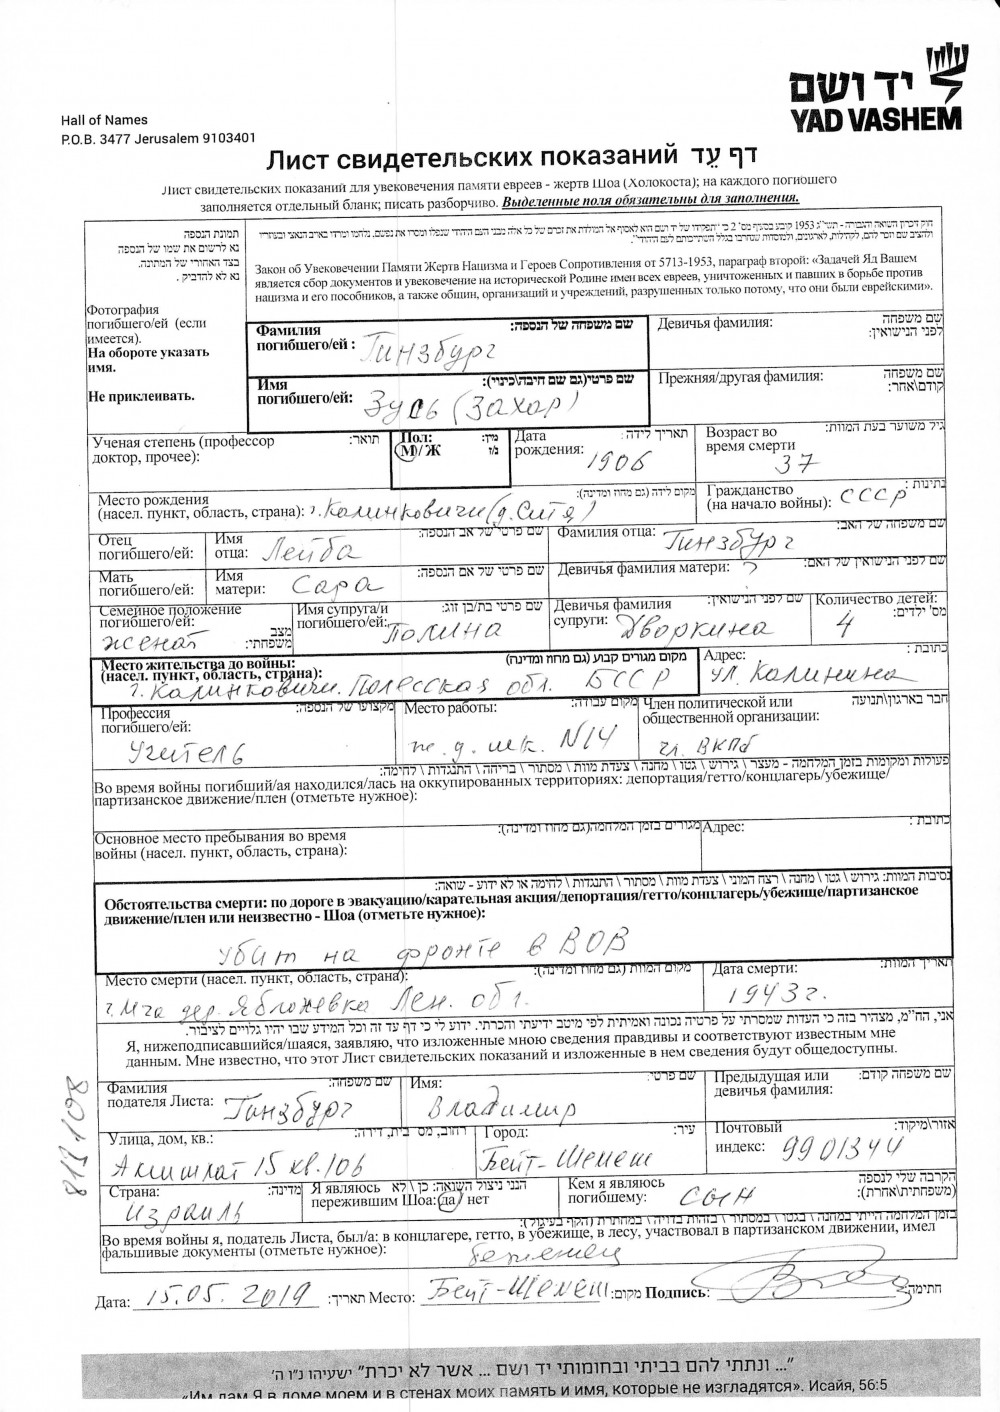 יד ושם
YAD VASHEM
Hall of Names
P.O.B. 3477 Jerusalem 9103401
Лист свидетельских показаний דף עֵד
Лист свидетельских показаний для увековечения памяти евреев - жертв Шоа (Холокоста); на каждого погибшего
заполняется отдельный бланк; писать разборчиво. Выделенные поля обязательны для заполнения.
תמונת הנספה
נא לרשום את שמו של הנספה
בצד האחורי של התמונה.
נא לא להדביק.
Фотография
погибшего/ей (если
имеется).
На обороте указать
имя.
Не приклеивать.
חוק זיכרון השואה והגבורה - תשי"ג 1953 קובע בסעיף מס' 2 כי "תפקידו של יד ושם הוא לאסוף אל המולדת את זכרם של כל אלה מבני העם היהודי שנפלו ומסרו את נפשם, נלחמו ומרדו באויב הנאצי ובעוזריו
ולהציב שם וזכר להם, לקהילות, לארגונים, ולמוסדות שנחרבו בגלל השתייכותם לעם היהודי".
Закон об Увековечении Памяти Жертв Нацизма и Героев Сопротивления от 5713-1953, параграф второй: «Задачей Яд Вашем
является сбор документов и увековечение на исторической Родине имен всех евреев, уничтоженных и павших в борьбе против
нацизма и его пособников, а также общин, организаций и учреждений, разрушенных только потому, что они были еврейскими».
Фамилия שם משפחה של הנספה:
погибшего/ей : Гинзбург
Девичья фамилия: שם משפחה
לפני הנישואין:
Имя שם פרטי(גם שם חיבה\כינוי):
погибшего/ей: Зусь (Захар)
Прежняя/другая фамилия: שם משפחה
קודם\אחר:
Ученая степень (профессор תואר:
доктор, прочее):
Пол: מין:
М/Ж ז/נ
Дата תאריך לידה:
рождения: 1906
Возраст во גיל משוער בעת המוות:
время смерти 37
Место рождения מקום לידה (גם מחוז ומדינה):
(насел. пункт, область, страна): г. Калинковичи (д. Ситя)
Гражданство נתינות:
(на начало войны): СССР
Отец
погибшего/ей:
Имя שם פרטי של אב הנספה:
отца: Лейба
Фамилия отца: Гинзбург שם משפחה של האב:
Мать
погибшего/ей:
Имя שם פרטי של אם הנספה:
матери: Сара
Девичья фамилия матери: ? שם לפני הנישואין של האם:
Семейное положение
погибшего/ей: מצב
женат משפחתי:
Имя супруга/и שם פרטי בת/בן זוג:
погибшего/ей: Полина
Девичья фамилия שם לפני הנישואין:
супруги: Дворкина
Количество детей:
4 מס' ילדים:
Место жительства до войны: מקום מגורים קבוע (גם מחוז ומדינה)
(насел. пункт, область, страна):
г. Калинковичи. Полесская обл. БССР
Адрес: כתובת :
ул. Калинина
Профессия מקצועו של הנספה:
погибшего/ей:
Учитель
Место работы: מקום עבודה:
ж.д. шк. N14
Член политической или חבר בארגון\תנועה
общественной организации:
чл. ВКПб
פעולות ומקומות בזמן המלחמה - מעצר \ גירוש \ גטו \ מחנה \ צעדת מוות \ מסתור \ בריחה \ התנגדות \ לחימה:
Во время войны погибший/ая находился/лась на оккупированных территориях: депортация/гетто/концлагерь/убежище/
партизанское движение/плен (отметьте нужное):
Основное место пребывания во время מגורים בזמן המלחמה(גם מחוז ומדינה):
войны (насел. пункт, область, страна):
Адрес: כתובת :
נסיבות המוות: גירוש \ גטו \ מחנה \ רצח המוני \ צעדת מוות \ מסתור \ התנגדות \ לחימה או לא ידוע - שואה:
Обстоятельства смерти: по дороге в эвакуацию/карательная акция/депортация/гетто/концлагерь/убежище/партизанское
движение/плен или неизвестно - Шоа (отметьте нужное):
Убит на фронте в ВОВ
Место смерти (насел. пункт, область, страна): מקום המוות (גם מחוז ומדינה):
г. Мга дер. Яблоневка Лен. обл.
Дата смерти: תאריך המוות:
1943г.
אני, הח"מ, מצהיר בזה כי העדות שמסרתי על פרטיה נכונה ואמיתית לפי מיטב ידיעתי והכרתי. ידוע לי כי דף עד זה וכל המידע שבו יהיו גלויים לציבור.
Я, нижеподписавшийся/шаяся, заявляю, что изложенные мною сведения правдивы и соответствуют известным мне
данным. Мне известно, что этот Лист свидетельских показаний и изложенные в нем сведения будут общедоступны.
Фамилия שם משפחה:
подателя Листа: Гинзбург
Имя: שם פרטי:
Владимир
Предыдущая или שם משפחה קודם:
девичья фамилия:
Улица, дом, кв.: רחוב, מס' בית, דירה:
Алишлат 15 кв. 106
Город: עיר:
Бейт-Шемеш
Почтовый אזור\מיקוד:
индекс: 9901344
Страна: מדינה:
Израиль
Я являюсь הנני ניצול השואה: כן \ לא
пережившим Шоа: да / нет
Кем я являюсь הקרבה שלי לנספה
погибшему: сын (משפחתית\אחרת):
בזמן המלחמה הייתי במחנה \ בגטו \ במסתור \ בזהות בדויה \ במחתרת (הקף בעיגול):
Во время войны я, податель Листа, был/а: в концлагере, гетто, в убежище, в лесу, участвовал в партизанском движении, имел
фальшивые документы (отметьте нужное): беженец
Дата: 15.05.2019 תאריך: Место: Бейт-Шемеш מקום: Подпись: חתימה:
"... ונתתי להם בביתי ובחומותי יד ושם ... אשר לא יכרת" ישעיהו נ"ו ה'
«Им дам Я в доме моем и в стенах моих память и имя, которые не изгладятся». Исайя, 56:5